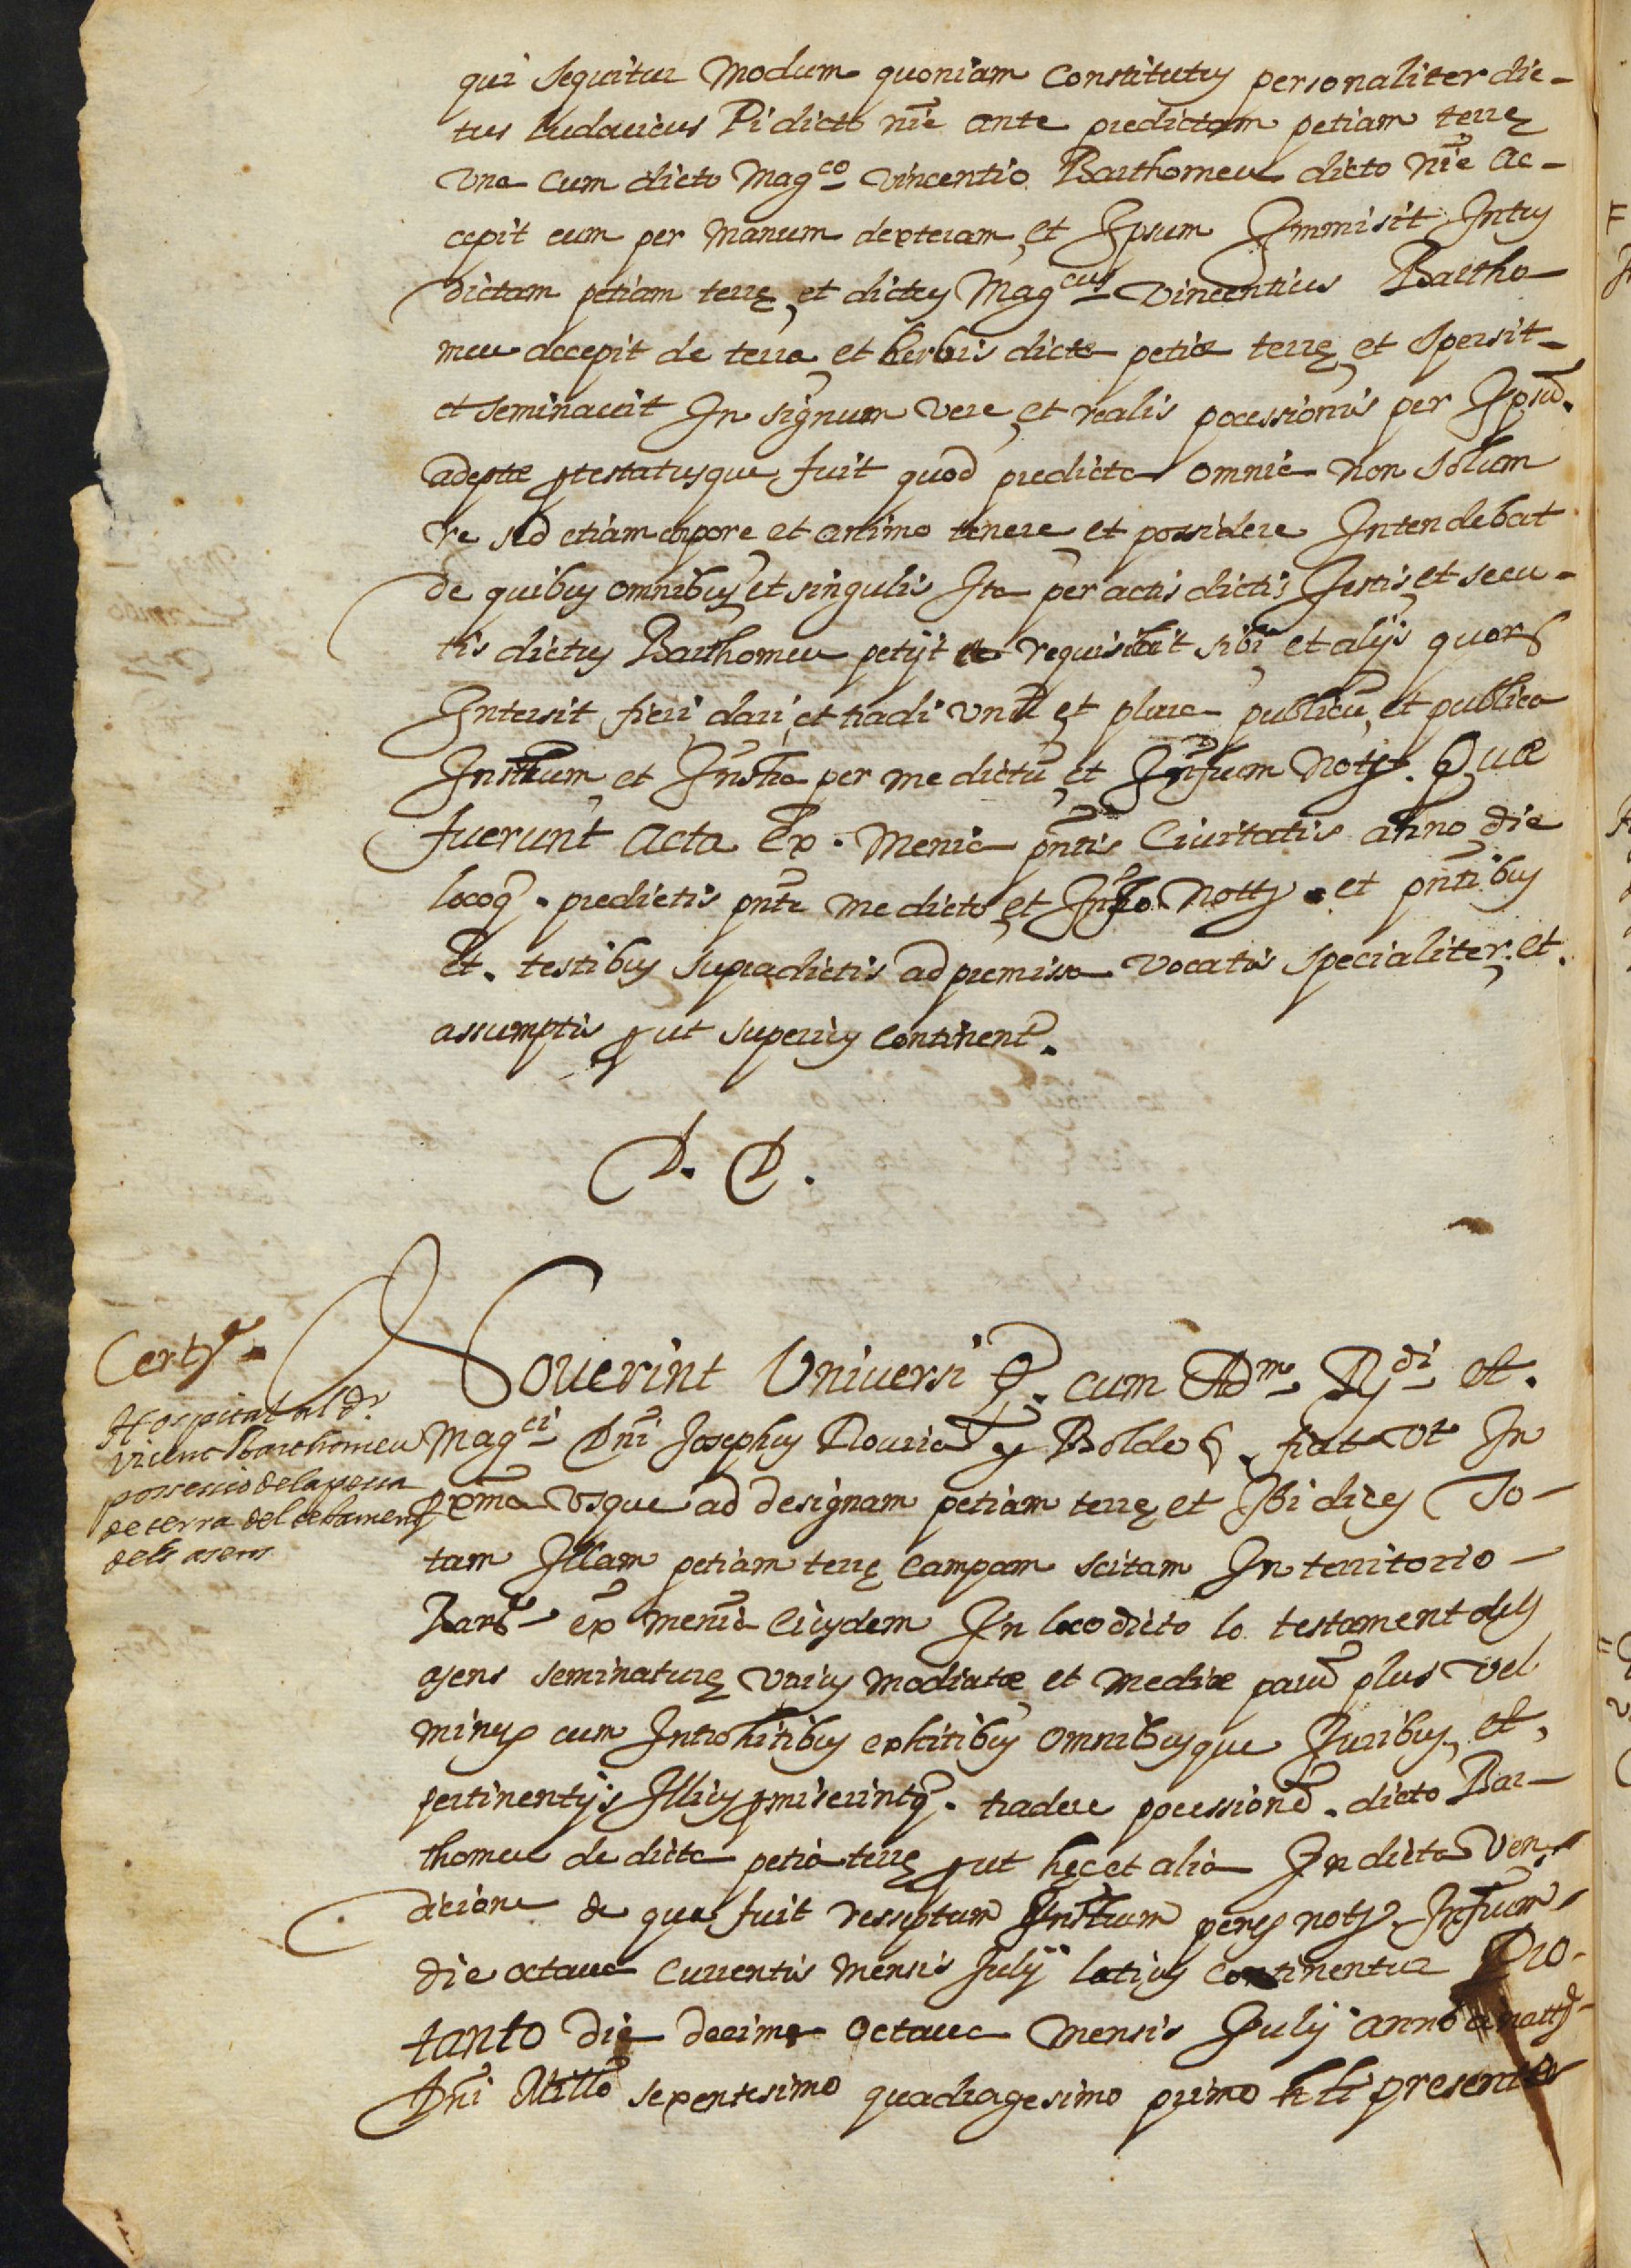 qui sequitur modum quoniam Constitutus personaliter dic-
tus Ludovicus Pi dicto nīe ante predictam petiam terrę
una cum dicto Magco Vincentio Barthomeu dicto nīe ac-
cepit eum per manum dexteram et Ipsum Immisit Intus
dictam petiam terrę et dictus Magcus Vincentius Bartho-
meu accepit de terra et herbis dicte petiæ terrę et spersit
et seminavit In signum vere et realis pocessionis per Ipsū.
adeptæ ptestatusque fuit quod predicta omnia non solum
re sed etiam corpore et animo tenere et possidere Intendebat
de quibus omnibus et singulis Ita per actis dictis Jestis et secu-
tis dictus Barthomeu petijt et requisivit sibi et alijs quor
Intersit fieri dari et tradi unū et plura publicū et publica
Instrum et Instra per me dictū et Infum Nots. Quæ
fuerunt acta Ex. Menia pntis Civitatis anno die
locoq. predictis pnte me dicto et Infto Notts. et pntibus
et. testibus supradictis ad premissa vocatis specialiter et.
assumptis put superius continent.
D. D.
Noverint Universi q. cum Adm Rdi et.
Magci Dni Josephus Douria y Bolde. fiat ut In
pxma usque ad designam petiam terrę et Ibi dices To-
tam Illam petiam terrę campam scitam In territorio
ex menia Ciusdem In loco dicto lo testament dels
asens seminaturę unius modiatæ et mediæ paud plus vel
minus cum Introhitibus exhitibus omnibusque Juribus et,
pertinentijs Illius pmiserintq. tradere pocessionē. dicto Bar-
thomeu de dicta petia terrę put hęc et alia In dicta Ven-
dicione de qua fuit resseptum Instrum penes nots. Infum
die octava currentis mensis Julij latius continentur Pro-
tanto die decima octava mensis Julij anno a natt
Dni Millo sepentesimo quadragesimo primo
Certs
Hospital al dr
Vicent Barthomeu
possessio de la pessa
de terra del testament
dels asens